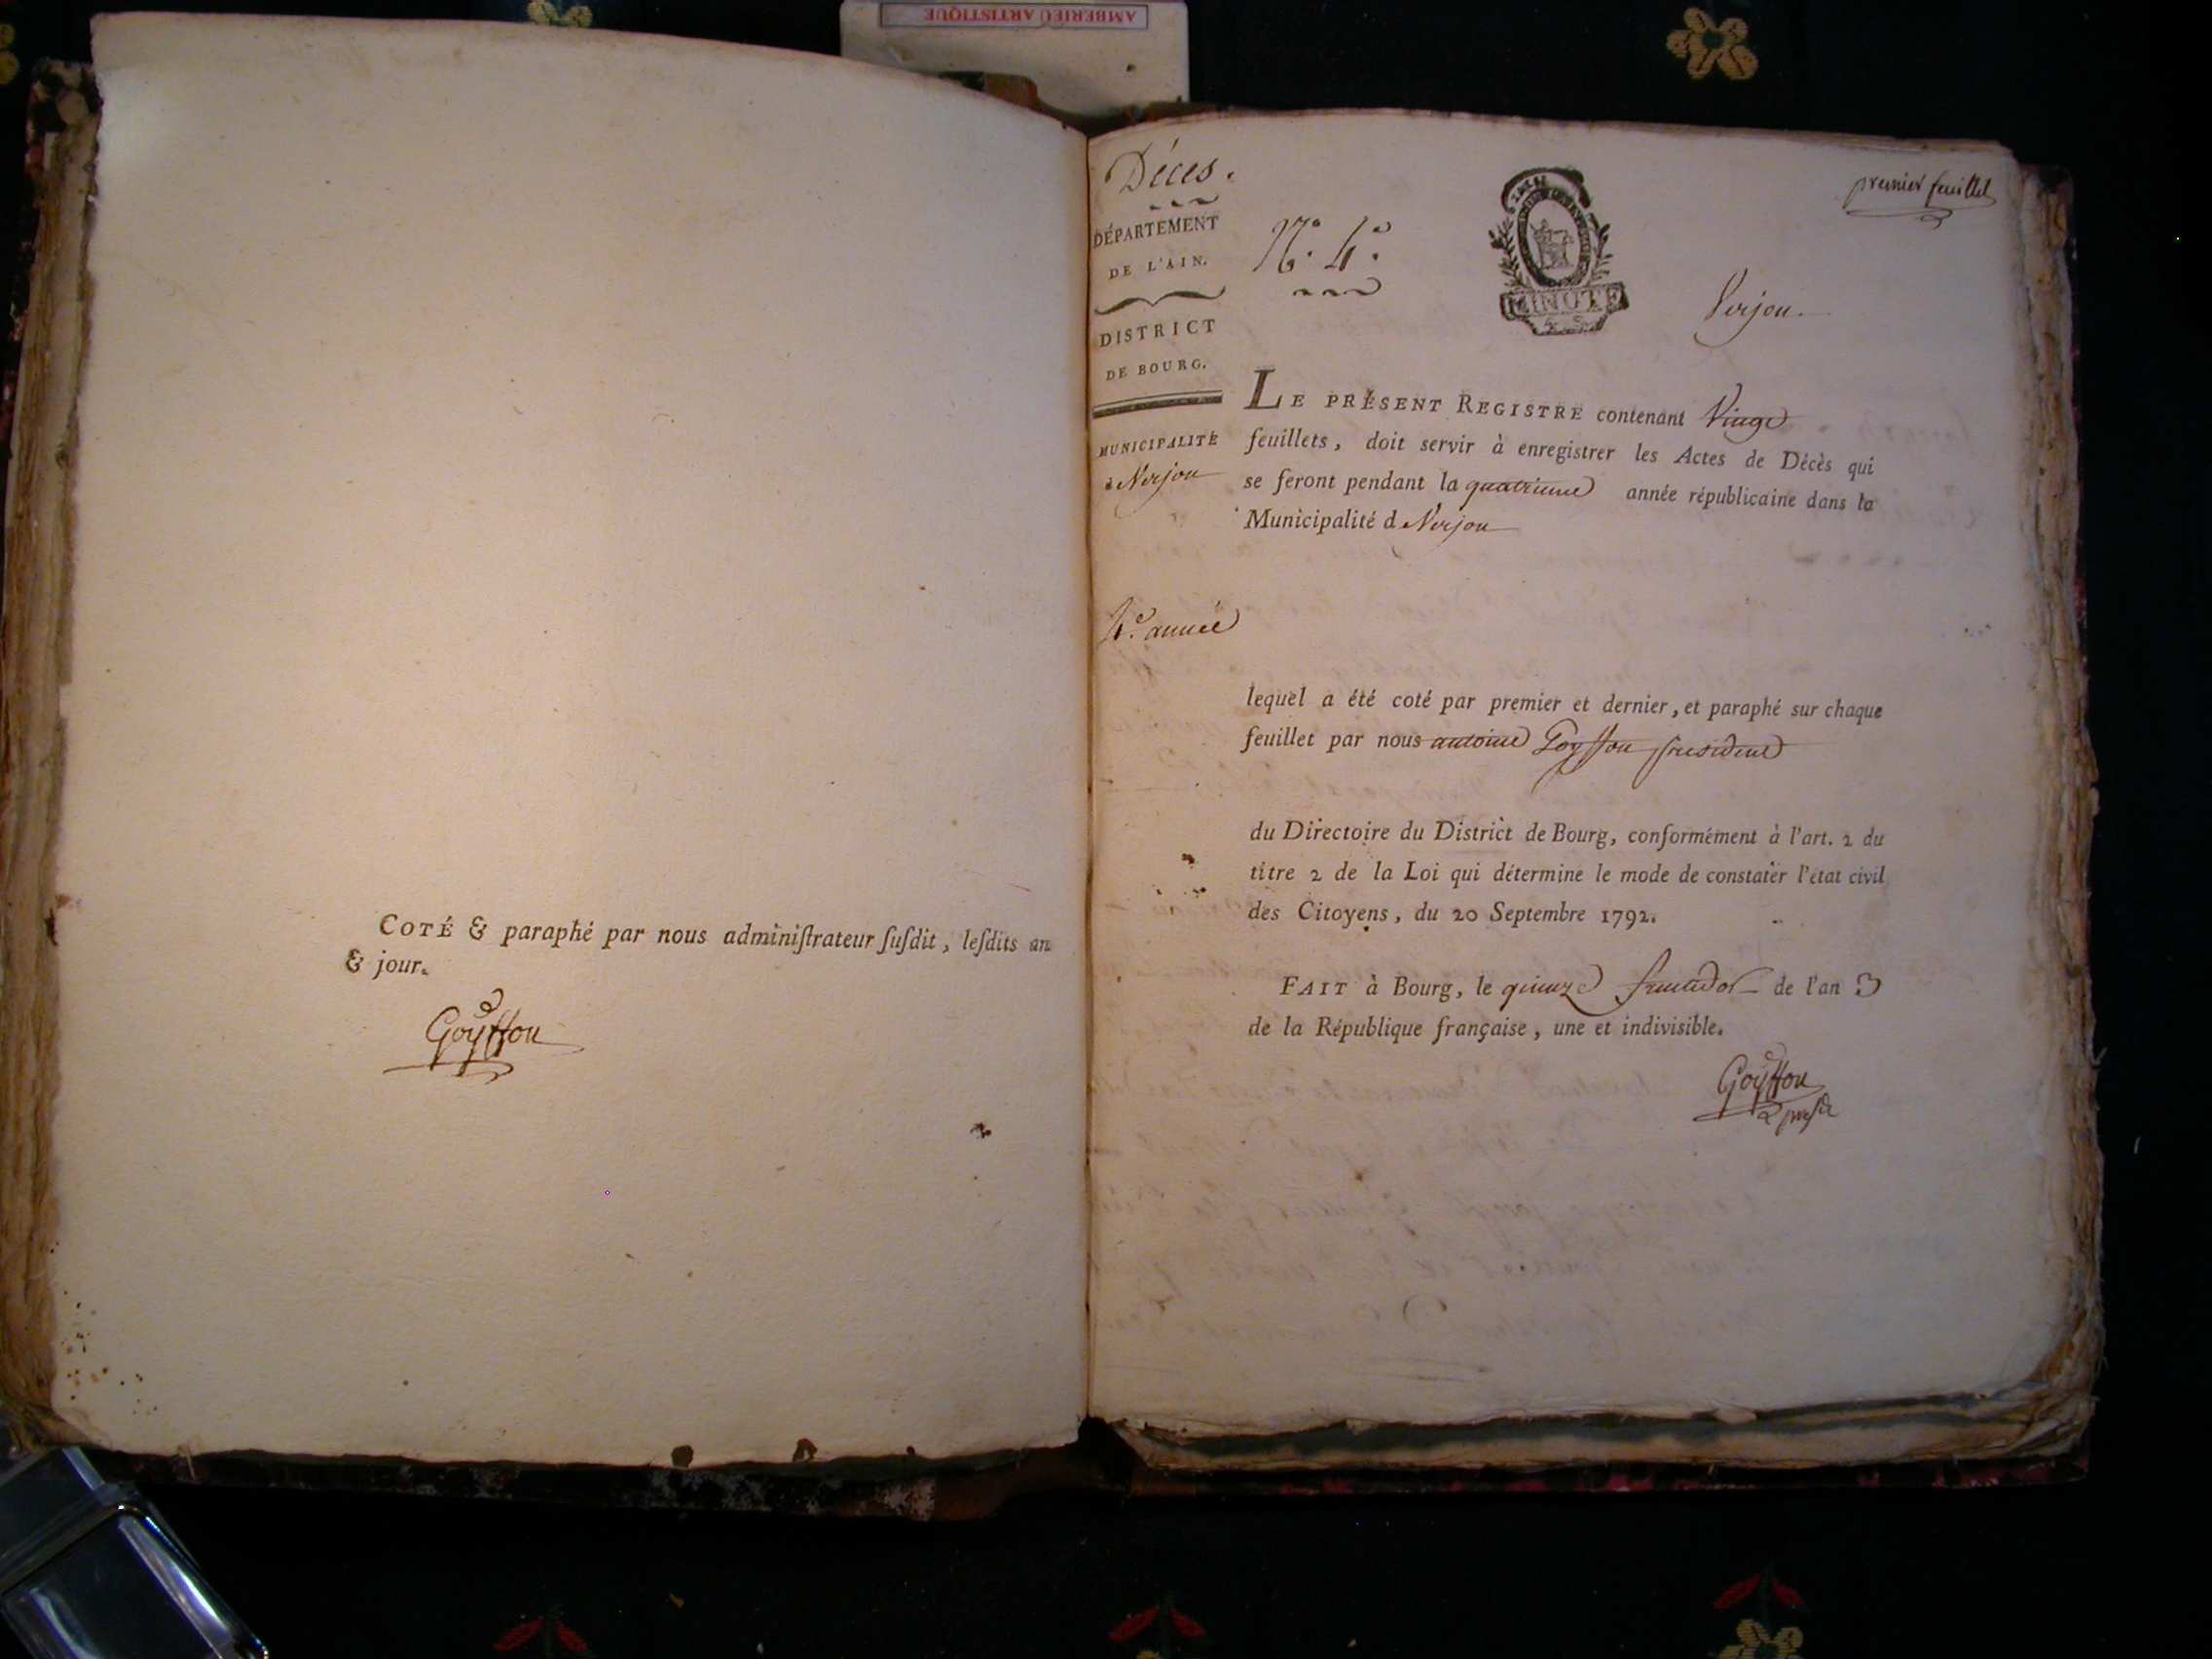 AMBERIEU ARTISTIQUE
COTÉ & paraphé par nous adminiſtrateur ſuſdit, leſdits an
& jour.
Goÿffon
Déces.
DÉPARTEMENT
DE L'AIN.
DISTRICT
DE BOURG.
MUNICIPALITÉ
de Verjon
4.e année
premier feuillet
N.o 4.o
MINUTE
Verjon.
LE PRÉSENT REGISTRE contenant Vingt
feuillets, doit servir à enregistrer les Actes de Décès qui
se feront pendant la quatrieme année républicaine dans la
Municipalité d Verjon
lequel a été coté par premier et dernier, et paraphé sur chaque
feuillet par nous antoine Goyffon president
du Directoire du District de Bourg, conformément à l'art. 2 du
titre 2 de la Loi qui détermine le mode de constater l'état civil
des Citoyens, du 20 Septembre 1792.
FAIT à Bourg, le quinze fructidor de l'an 3
de la République française, une et indivisible.
Goÿffon